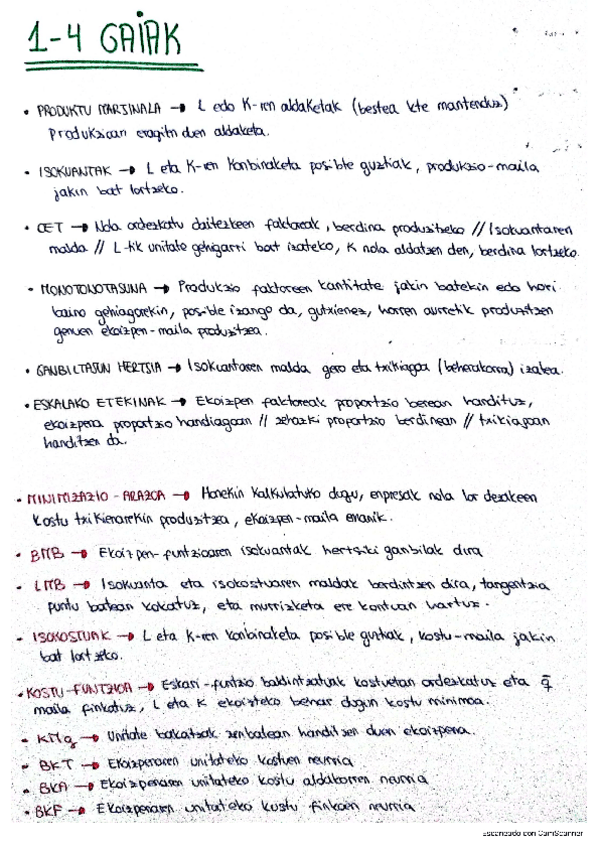 1-4 GAIAK
• PRODUKTU MARJINALA → L edo K-ren aldaketak (bestea kte mantenduz)
Produkzioan eragiten duen aldaketa.
• ISOKUANTAK → L eta K-ren konbinaketa posible guztiak, produkzio-maila
jakin bat lortzeko.
• OET → Nola ordezkatu daitezkeen faktoreak, berdina produzitzeko // Isokuantaren
malda // L-tik unitate gehigarri bat izateko, K nola aldatzen den, berdina lortzeko.
• MONOTONOTASUNA → Produkzio faktoreen kantitate jakin batekin edo hori
baino gehiagorekin, posible izango da, gutxienez, horren aurretik produzitzen
genuen ekoizpen-maila produzitzea.
• GANBILTASUN HERTSIA → Isokuantaren malda gero eta txikiagoa (beherakorra) izatea.
• ESKALAKO ETEKINAK → Ekoizpen faktoreak proportzio berean handituz,
ekoizpena proportzio handiagoan // zehazki proportzio berdinean // txikiagoan
handitzen da.
• MINIMIZAZIO-ARAZOA → Honekin kalkulatuko dugu, enpresak nola lor dezakeen
kostu txikienarekin produzitzea, ekoizpen-maila emanik.
• BMB → Ekoizpen-funtzioaren isokuantak hertsiki ganbilak dira
• LMB → Isokuanta eta isokostuaren maldak berdintzen dira, tangentzia
puntu batean kokatuz, eta murrizketa ere kontuan hartuz.
• ISOKOSTUAK → L eta K-ren konbinaketa posible guztiak, kostu-maila jakin
bat lortzeko.
• KOSTU-FUNTZIOA → Eskari-funtzio baldintzatuak kostuetan ordezkatuz eta q̄
maila finkatuz, L eta K ekoizteko behar dugun kostu minimoa.
• KMg → Unitate bakoitzak zenbatean handitzen duen ekoizpena.
• BKT → Ekoizpenaren unitateko kostuen neurria
• BKA → Ekoizpenaren unitateko kostu aldakorren neurria
• BKF → Ekoizpenaren unitateko kostu finkoen neurria
Escaneado con CamScanner